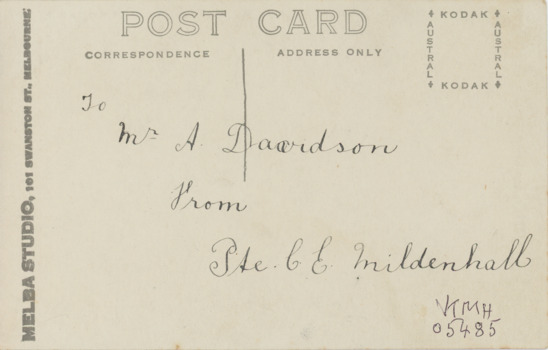 POST CARD
CORRESPONDENCE
ADDRESS ONLY
KODAK
AUSTRAL
AUSTRAL
KODAK
MELBA STUDIO, 101 SWANSTON ST., MELBOURNE.
To
Mr A. Davidson
From
Pte. C E. Mildenhall
KMH
05485